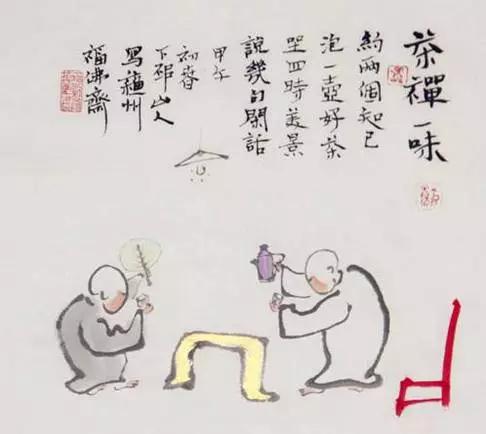 茶禪一味
約兩個知己
泡一壺好茶
坐四時美景
說幾句閑話
甲午
初春
下邳山人
寫蘓州
福佛齋